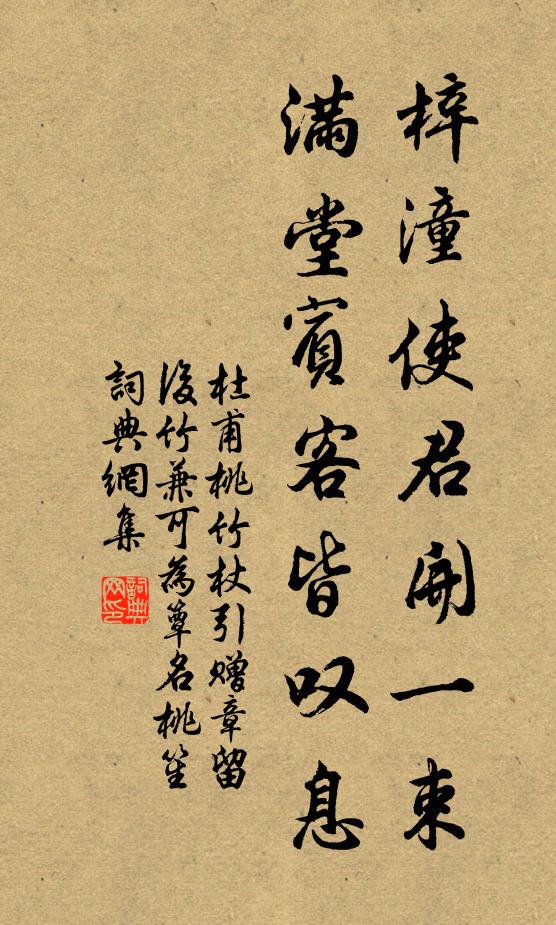 梓潼使君開一束
滿堂賓客皆叹息
杜甫桃竹杖引赠章留
後竹兼可為簟名桃笙
詞典網集
詞典网印